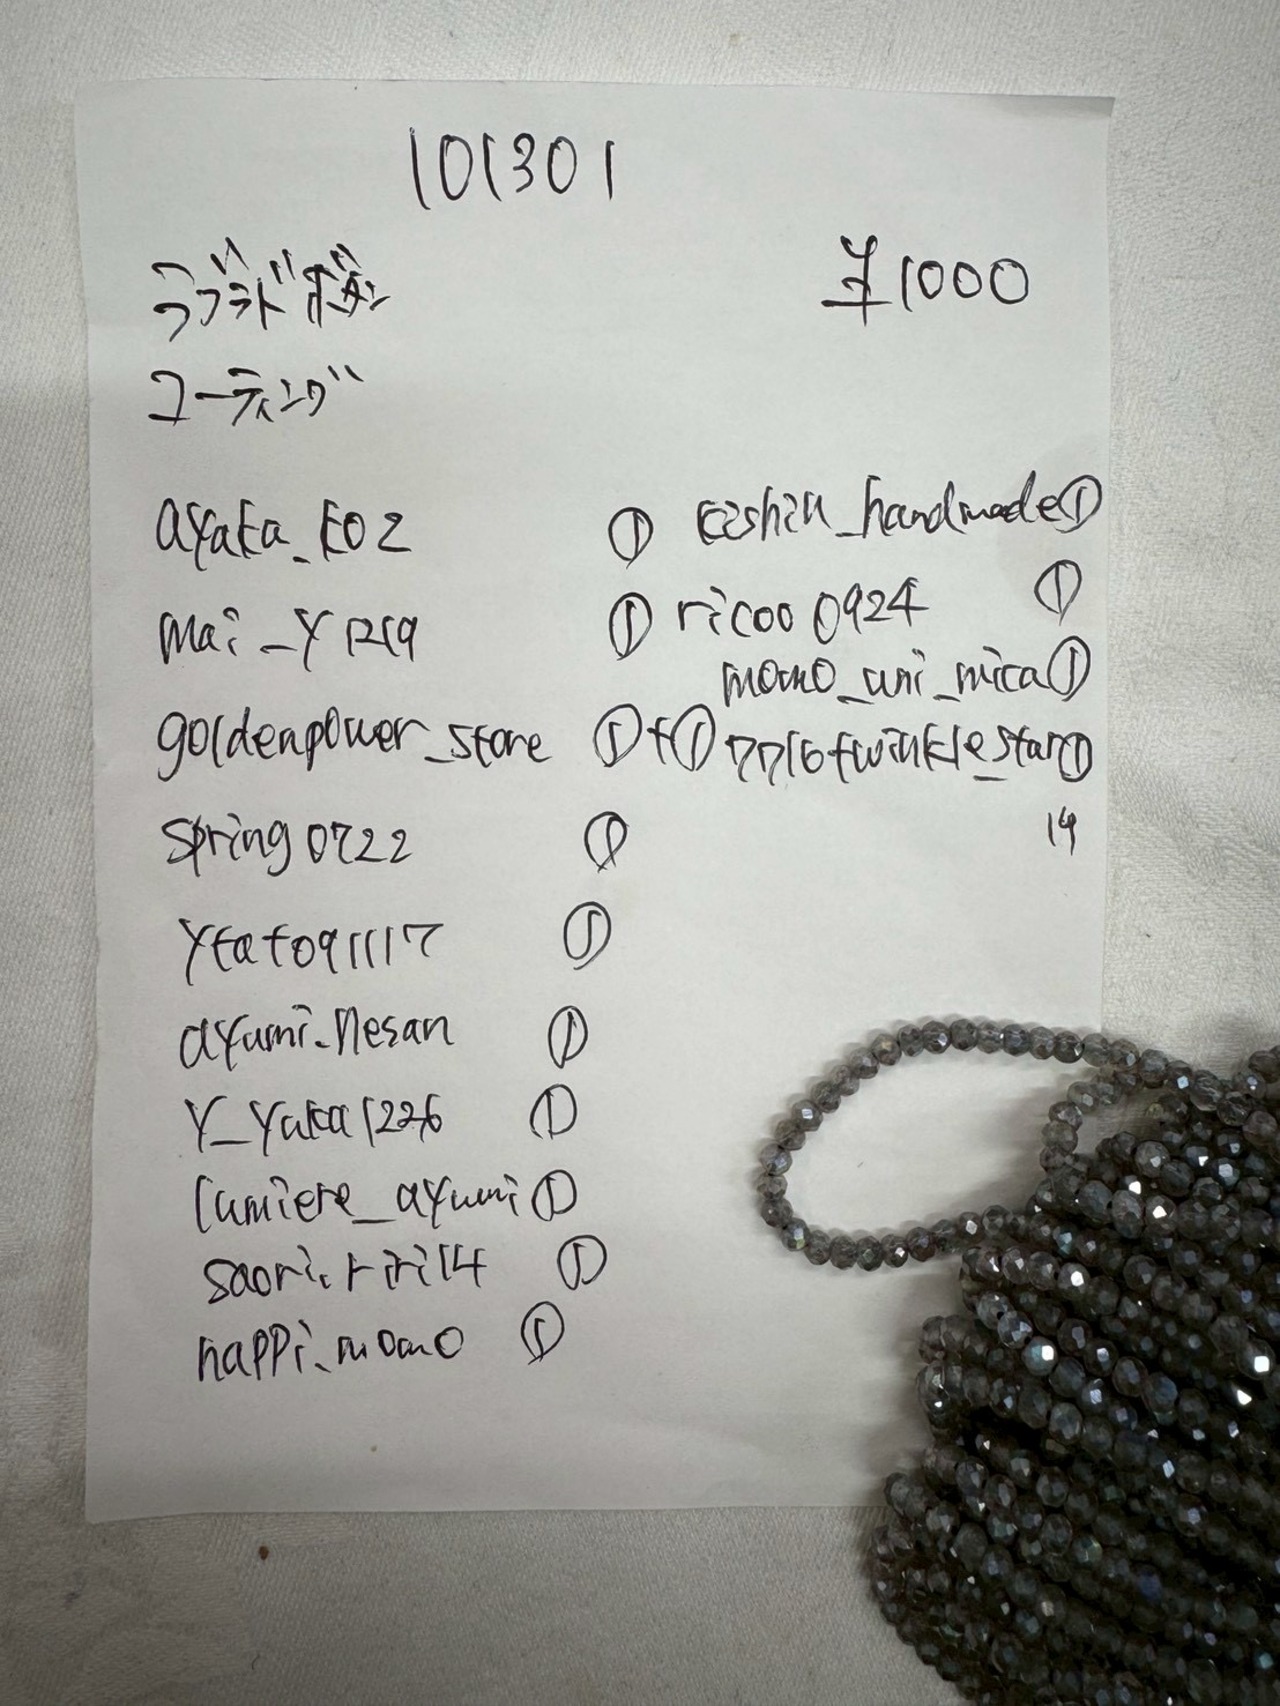 101301
¥1000
コーティング
ayaka_k02 ①
mai_y1219 ①
goldenpower_store ①+①
spring0722 ①
ykato91117 ①
ayumi.nesan ①
y_yuka1226 ①
lumiere_ayumi ①
saori.riri14 ①
happi.momo ①
kishin_handmade ①
ricoo0924 ①
momo_uni_mica ①
7716twinkle_star ①
14